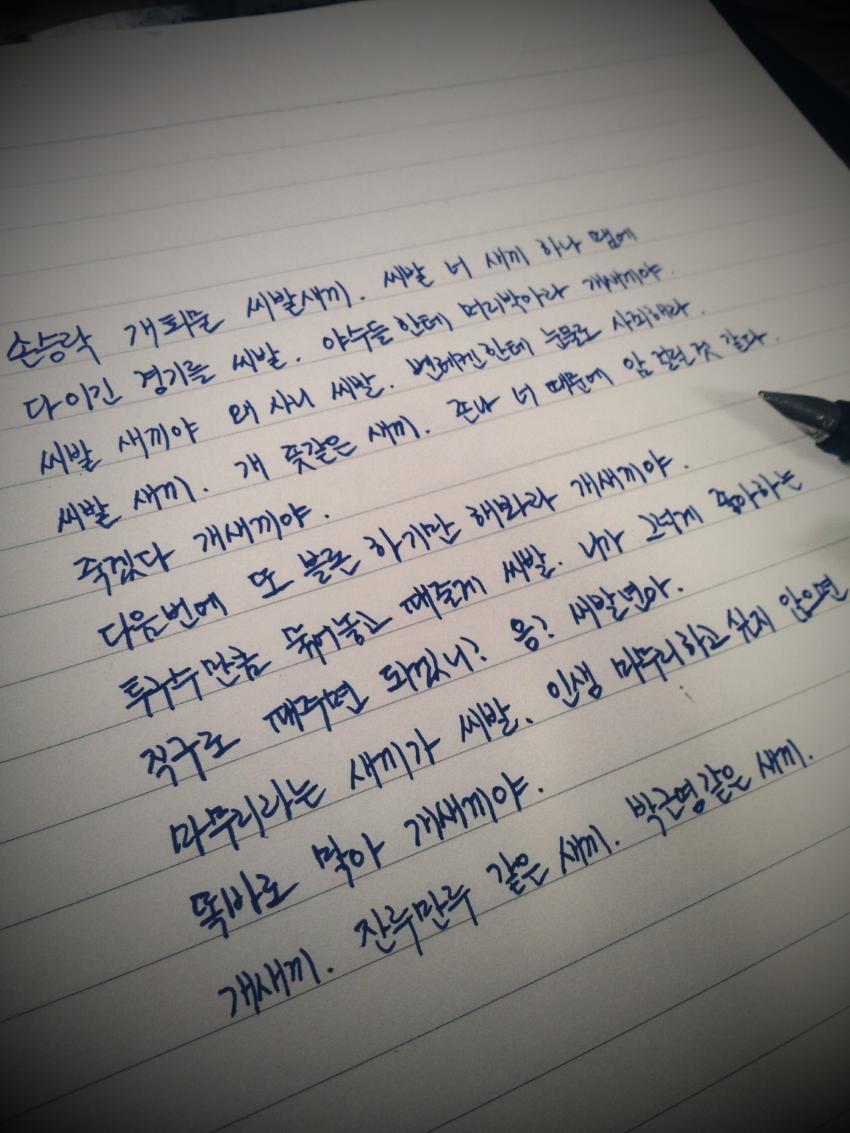 손승락 개퇴물 씨발새끼. 씨발 너 새끼 하나 땜에
다 이긴 경기를 씨발. 야수들한테 머리박아라 개새끼야.
씨발 새끼야 왜 사니 씨발. 번헤켄한테 눈물로 사죄해라.
씨발 새끼. 개 좆같은 새끼. 존나 너 때문에 암 걸린 것 같다.
죽겠다 개새끼야.
다음번에 또 블론 하기만 해봐라 개새끼야.
투구수만큼 묶어놓고 때줄게 씨발. 니가 그렇게 좋아하는
직구로 때주면 되겠니? 응? 씨발년아.
마무리라는 새끼가 씨발. 인생 마무리하고 싶지 않으면
똑바로 막아 개새끼야.
개새끼. 잔루만루 같은 새끼. 박근영같은 새끼.